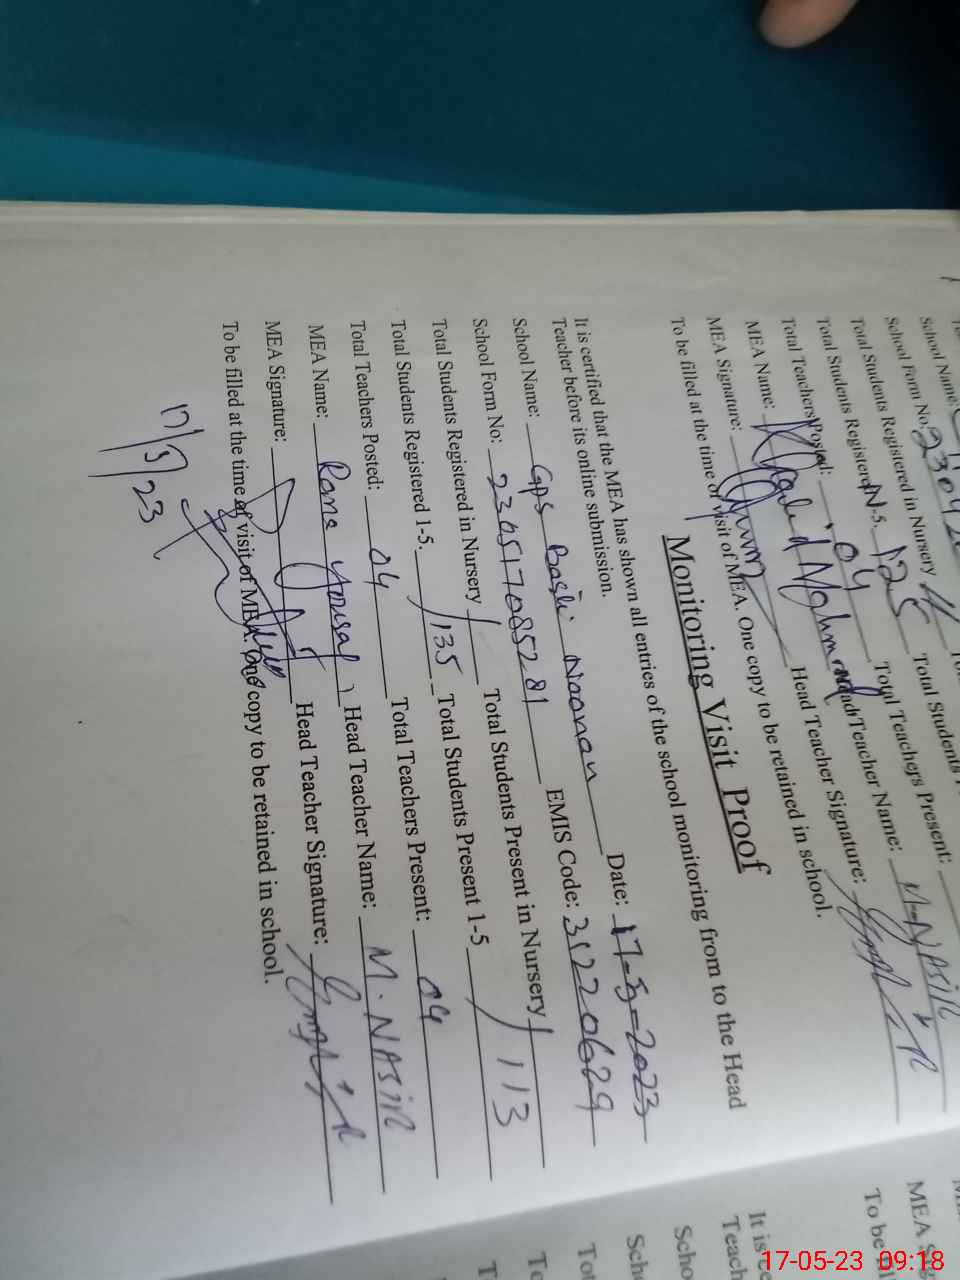 School Name:
School Form No: 23042
Total Students Registered in Nursery Total Students
Total Students Registered N-5. 125 Total Teachers Present:
Total Teachers Posted: 04 Head Teacher Name: M-NASIR
MEA Name: Khalid Mahmood Head Teacher Signature:
MEA Signature:
To be filled at the time of visit of MEA. One copy to be retained in school.
Monitoring Visit Proof
It is certified that the MEA has shown all entries of the school monitoring from to the Head
Teacher before its online submission.
School Name: GPS Basti Noonan Date: 17-5-2023
School Form No: 230517085281 EMIS Code: 31220629
Total Students Registered in Nursery Total Students Present in Nursery
Total Students Registered 1-5. 135 Total Students Present 1-5 113
Total Teachers Posted: 04 Total Teachers Present: 04
MEA Name: Rana Yousaf Head Teacher Name: M. NASIR
MEA Signature: Head Teacher Signature:
To be filled at the time of visit of MEA. One copy to be retained in school.
17/5/23
MEA
To be fil
It is c
Teach
Scho
Scho
Tot
To
T
17-05-23 09:18